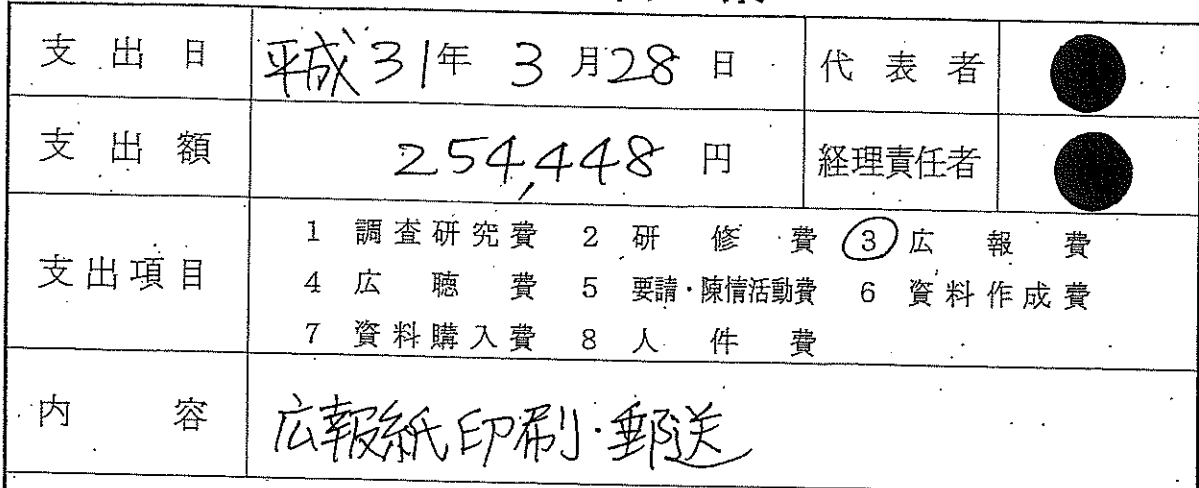 支出日 平成31年 3月28日 代表者
支出額 254,448円 経理責任者
支出項目 1 調査研究費 2 研修費 3 広報費
4 広聴費 5 要請・陳情活動費 6 資料作成費
7 資料購入費 8 人件費
内容 広報紙印刷・郵送